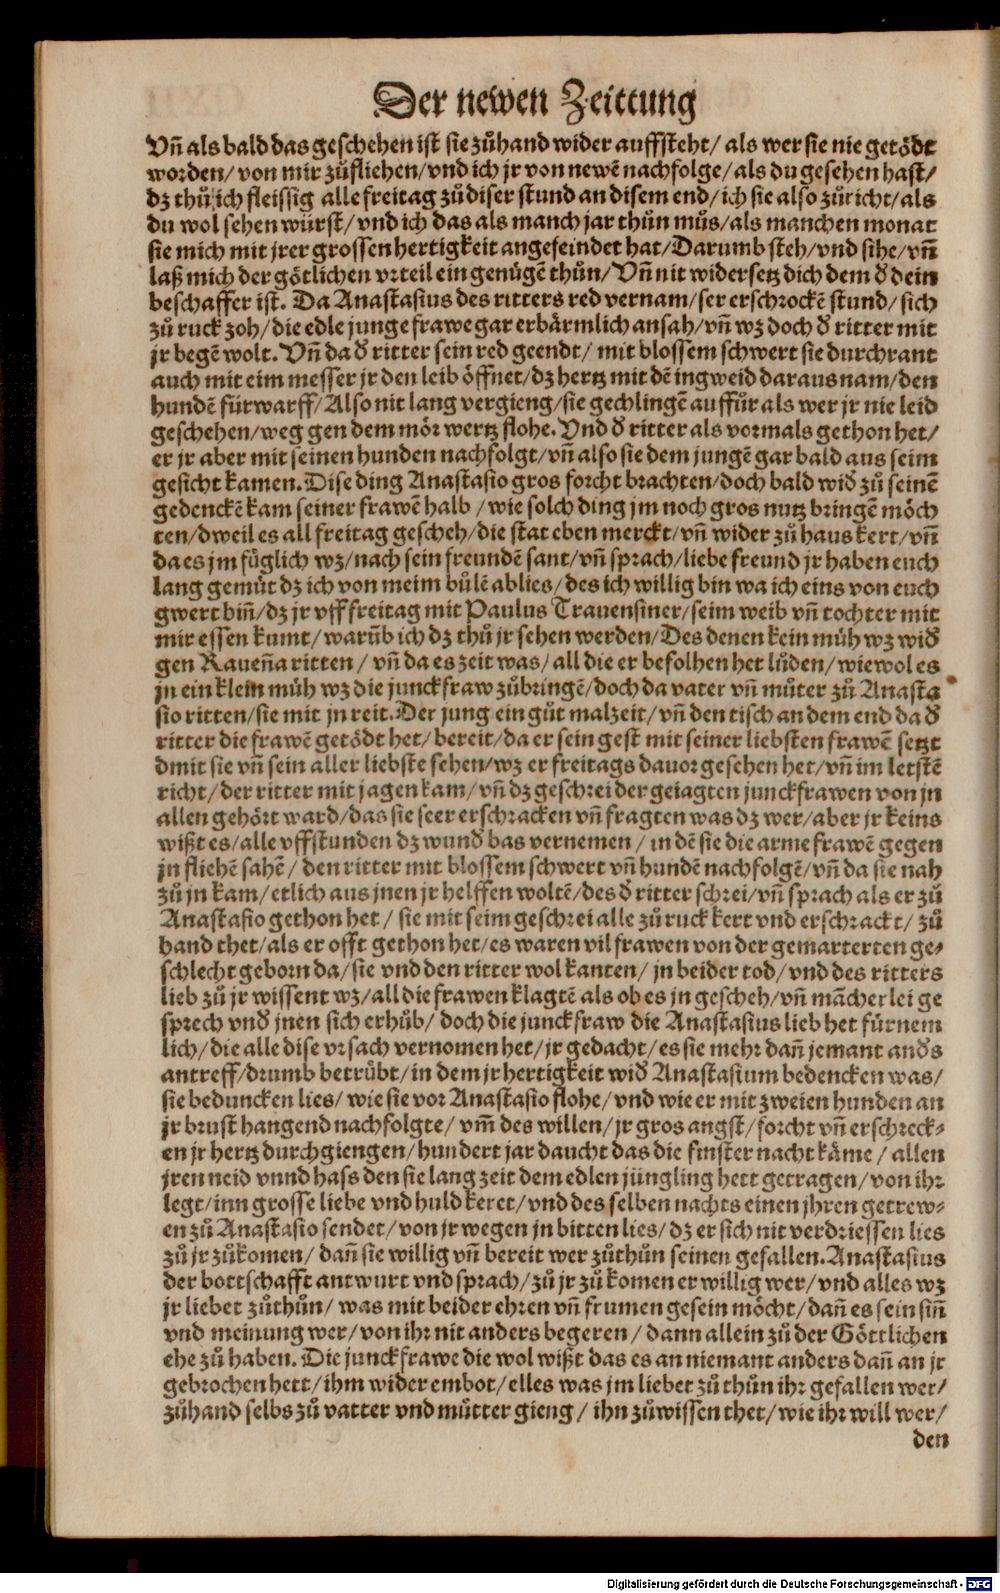 Der newen Zeittung
Vñ als bald das geschehen ist sie zůhand wider auffsteht/ als wer sie nie getödt
worden/ von mir zůfliehen/ vnd ich jr von newẽ nachfolge/ als du gesehen hast/
dz thů ich fleissig alle freitag zů diser stund an disem end/ ich sie also zůricht/ als
du wol sehen würst/ vnd ich das als manch jar thůn můs/ als manchen monat
sie mich mit jrer grossen hertigkeit angefeindet hat/ Darumb steh/ vnd sihe/ vñ
laß mich der götlichen vrteil ein genügẽ thůn/ Vñ nit widersetz dich dem d̕ dein
beschaffer ist. Da Anastasius des ritters red vernam/ ser erschrockẽ stund/ sich
zů ruck zoh/ die edle junge frawe gar erbärmlich ansah/ vñ wz doch d̕ ritter mit
jr begẽ wolt. Vñ da d̕ ritter sein red geendt/ mit blossem schwert sie durchrant
auch mit eim messer jr den leib öffnet/ dz hertz mit dẽ ingweid daraus nam/ den
hundẽ fürwarff/ Also nit lang vergieng/ sie gechlingẽ auffůr als wer jr nie leid
geschehen/ weg gen dem mör wertz flohe. Vnd d̕ ritter als vormals gethon het/
er jr aber mit seinen hunden nachfolgt/ vñ also sie dem jungẽ gar bald aus seim
gesicht kamen. Dise ding Anastasio gros forcht brachten/ doch bald wid̕ zů seinẽ
gedenckẽ kam seiner frawẽ halb / wie solch ding jm noch gros nutz bringẽ möch
ten/ dweil es all freitag gescheh/ die stat eben merckt/ vñ wider zů haus kert/ vñ
da es jm füglich wz/ nach sein freundẽ sant/ vñ sprach/ liebe freund jr haben euch
lang gemüt dz ich von meim bůlẽ ablies/ des ich willig bin wa ich eins von euch
gwert biñ/ dz jr vff freitag mit Paulus Trauensiner/ seim weib vñ tochter mit
mir essen kumt/ warũb ich dz thů jr sehen werden/ Des denen kein můh wz wid̕
gen Raueña ritten / vñ da es zeit was/ all die er befolhen het lůden/ wiewol es
jn ein klein můh wz die junckfraw zůbringẽ/ doch da vater vñ můter zů Anasta
sio ritten/ sie mit jn reit. Der jung ein gůt malzeit/ vñ den tisch an dem end da d̕
ritter die frawẽ getödt het/ bereit/ da er sein gest mit seiner liebsten frawẽ setzt
dmit sie vñ sein aller liebste sehen/ wz er freitags dauor gesehen het/ vñ im letstẽ
richt/ der ritter mit jagen kam/ vñ dz geschrei der geiagten junckfrawen von jn
allen gehört ward/ das sie seer erschracken vñ fragten was dz wer/ aber jr keins
wißt es/ alle vffstunden dz wund̕ bas vernemen / in dẽ sie die arme frawẽ gegen
jn fliehẽ sahẽ / den ritter mit blossem schwert vñ hundẽ nachfolgẽ/ vñ da sie nah
zů jn kam/ etlich aus jnen jr helffen woltẽ/ des d̕ ritter schrei/ vñ sprach als er zů
Anastasio gethon het / sie mit seim geschrei alle zů ruck kert vnd erschrackt/ zů
hand thet/ als er offt gethon het/ es waren vil frawen von der gemarterten ge⸗
schlecht geborn da/ sie vnd den ritter wol kanten/ jn beider tod/ vnd des ritters
lieb zů jr wissent wz/ all die frawen klagtẽ als ob es jn gescheh/ vñ mãcherlei ge
sprech vnd̕ jnen sich erhůb/ doch die junckfraw die Anastasius lieb het fürnem
lich/ die alle dise vrsach vernomen het/ jr gedacht/ es sie mehr dañ jemant and̕s
antreff/ drumb betrübt/ in dem jr hertigkeit wid̕ Anastasium bedencken was/
sie beduncken lies/ wie sie vor Anastasio flohe/ vnd wie er mit zweien hunden an
jr brust hangend nachfolgte/ vm̃ des willen/ jr gros angst/ forcht vñ erschreck⸗
en jr hertz durchgiengen/ hundert jar daucht das die finster nacht käme / allen
jren neid vnnd hass den sie lang zeit dem edlen jüngling hett getragen/ von ihr
legt/ inn grosse liebe vnd huld keret/ vnd des selben nachts einen jhren getrew⸗
en zů Anastasio sendet/ von jr wegen jn bitten lies/ dz er sich nit verdriessen lies
zů jr zůkomen/ dañ sie willig vñ bereit wer zůthůn seinen gefallen. Anastasius
der bottschafft antwurt vnd sprach/ zů jr zů komen er willig wer/ vnd alles wz
jr liebet zůthůn/ was mit beider ehren vñ frumen gesein möcht/ dañ es sein siñ
vnd meinung wer/ von ihr nit anders begeren / dann allein zů der Göttlichen
ehe zů haben. Die junckfrawe die wol wißt das es an niemant anders dañ an jr
gebrochen hett/ ihm wider embot/ elles was jm liebet zů thůn ihr gefallen wer/
zůhand selbs zů vatter vnd můtter gieng / ihn zůwissen thet/ wie ihr will wer/
den
Digitalisierung gefördert durch die Deutsche Forschungsgemeinschaft - DFG